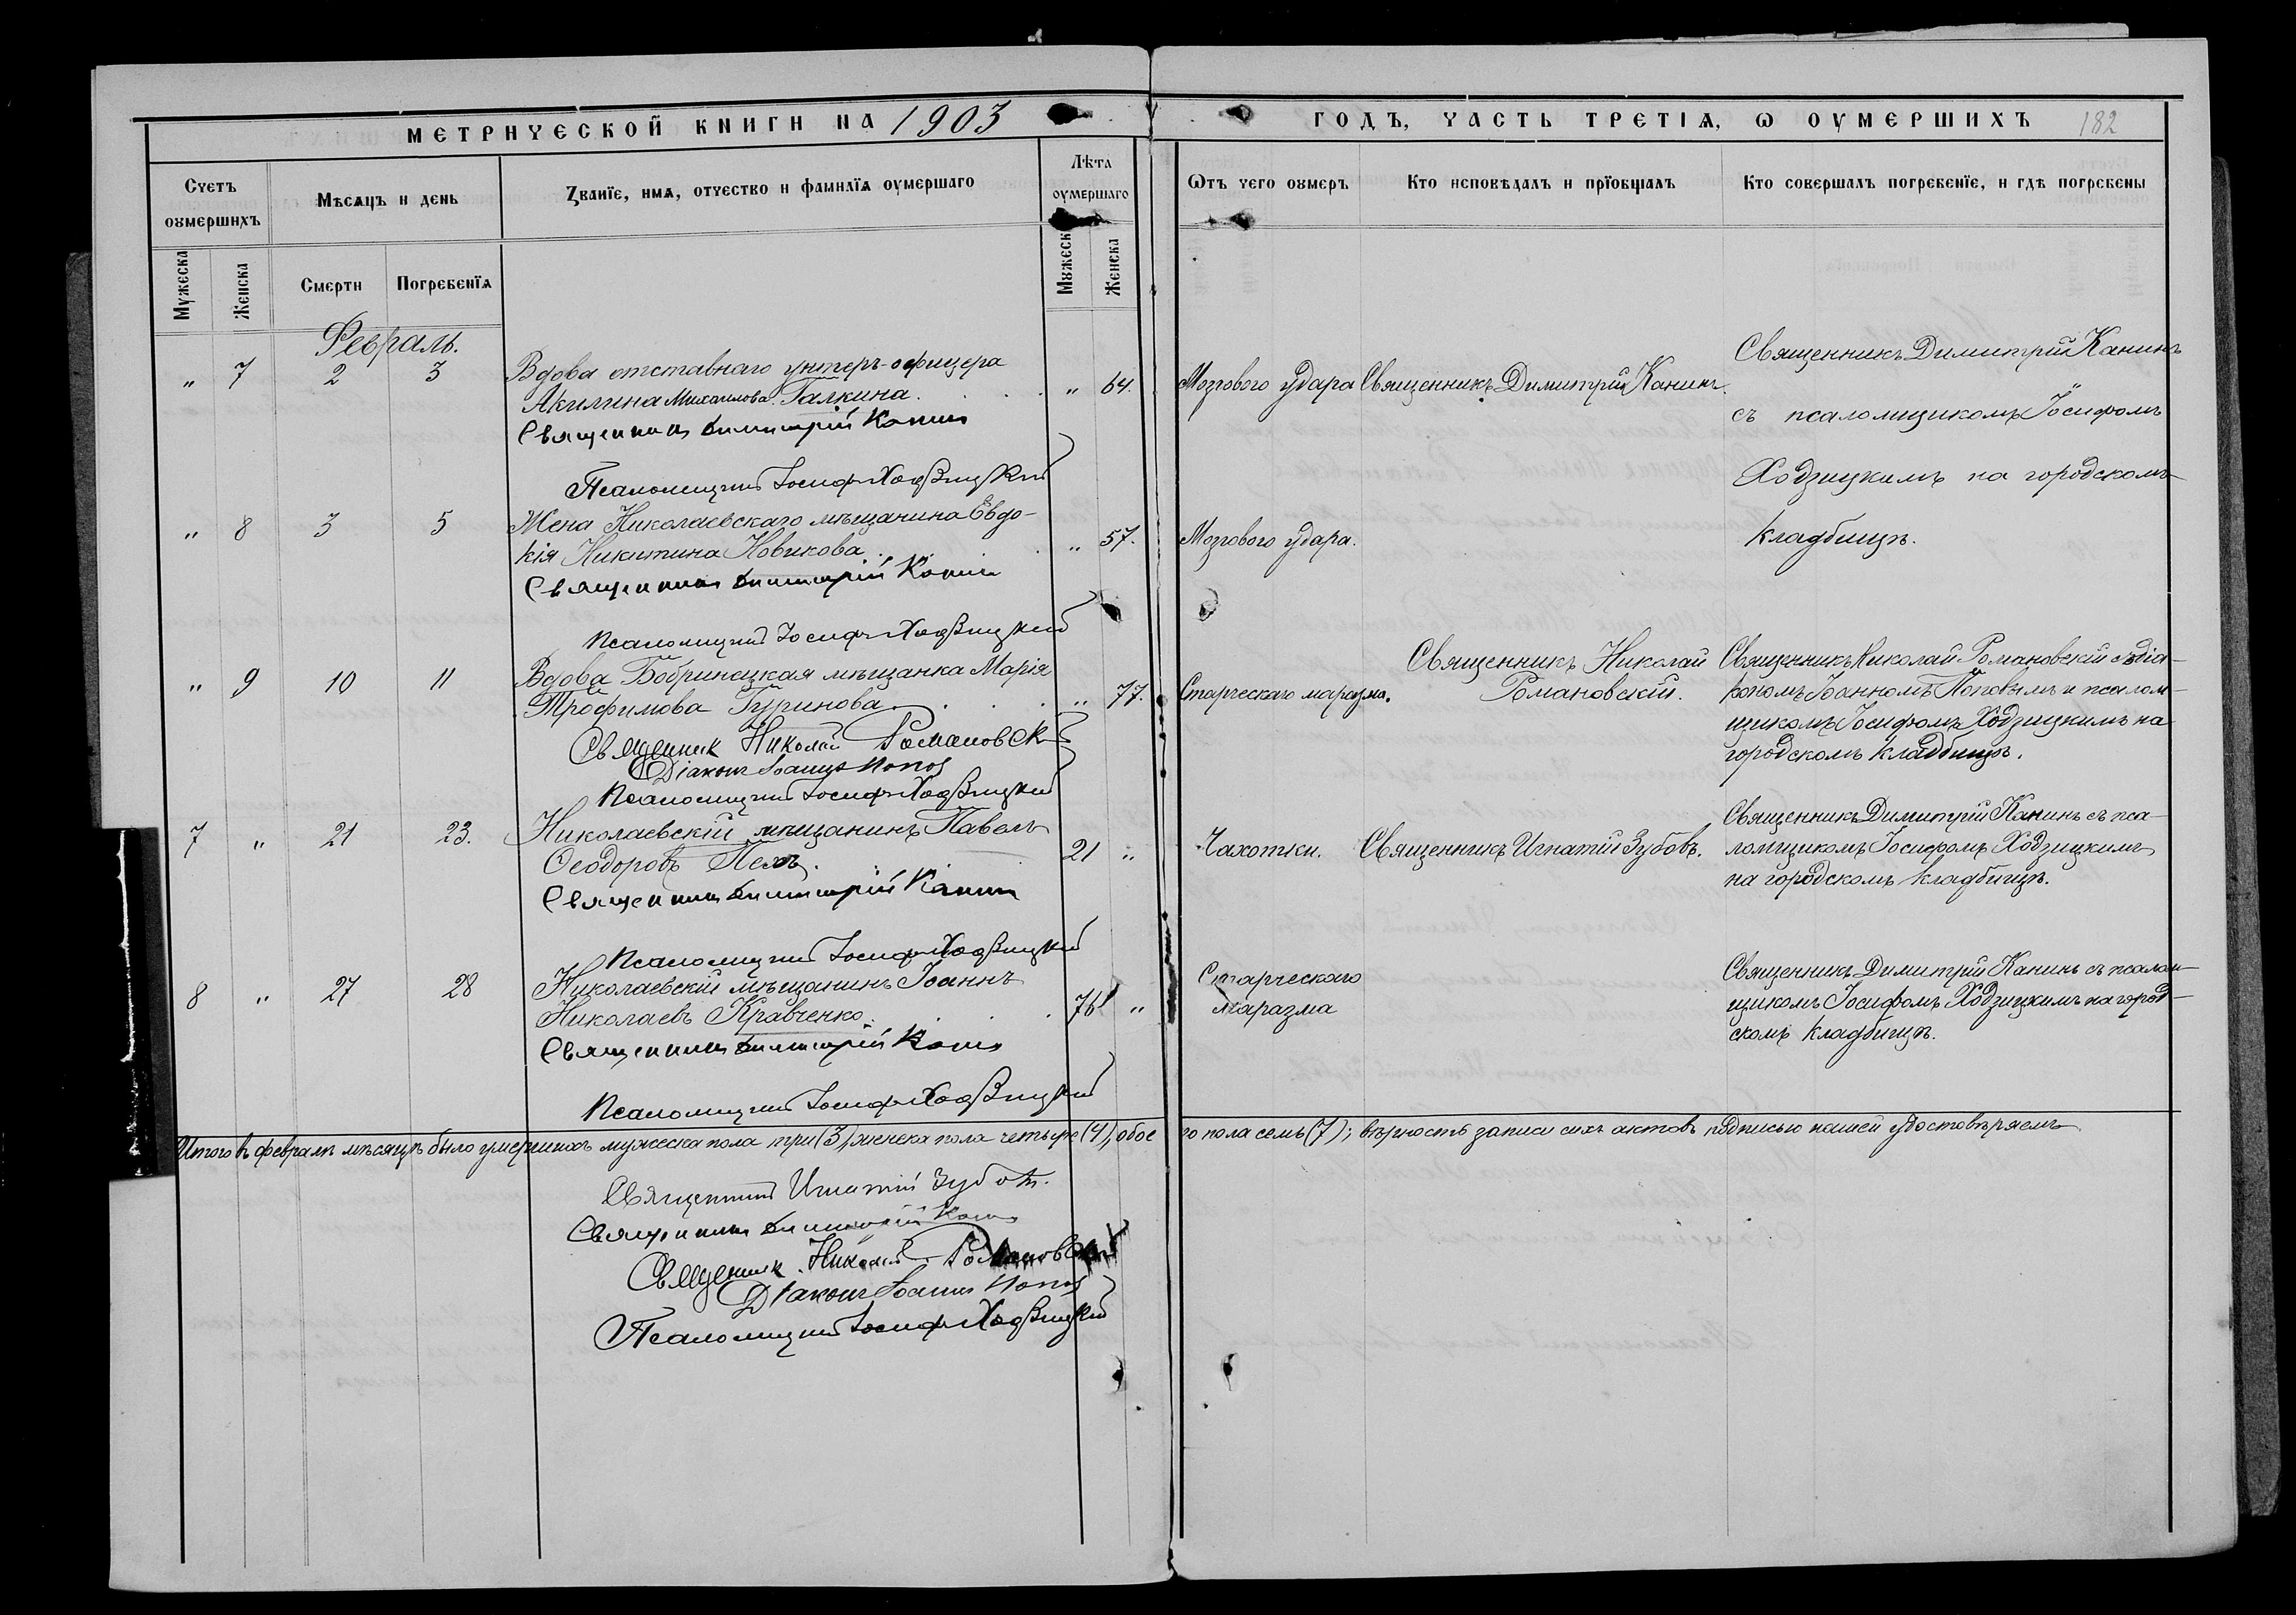 МЕТРИЧЕСКОЙ КНИГИ НА 1903
ГОДЪ, ЧАСТЬ ТРЕТІѦ, Ѡ ОУМЕРШИХЪ 182
Счетъ оумершихъ
Мѣсяцъ и день
Званїе, имѧ, отчество и фамилїѧ оумершаго
Лѣта оумершаго
Ѿтъ чего оумеръ
Кто исповѣдалъ и прїобщалъ
Кто совершалъ погребенїе, и гдѣ погребены
Мужеска
Женска
Смерти
Погребенїѧ
Мужеск
Женска
Февраль.
" 7 2 3 Вдова отставнаго унтеръ-офицера
Акилина Михаилова Галкина. " 64.
Мозгового удара Священникъ Димитрій Канинъ.
Священникъ Димитрій Канинъ
съ псаломщикомъ Іосифомъ
Ходзицкимъ на городскомъ
кладбищѣ.
Священникъ Димитрій Канинъ
Псаломщикъ Іосифъ Ходзицкій
" 8 3 5 Жена Николаевскаго мѣщанина Евдо-
кія Никитина Новикова " 57. Мозгового удара.
Священникъ Димитрій Канинъ
Псаломщикъ Іосифъ Ходзицкій
" 9 10 11 Вдова Бобринецкая мѣщанка Марія
Трофимова Гуринова " 77. Старческаго маразма.
Священникъ Николай
Романовскій.
Священникъ Николай Романовскій съ діа-
кономъ Іоанномъ Поповымъ и псалом-
щикомъ Іосифомъ Ходзицкимъ на
городскомъ кладбищѣ.
Священник Николай Романовск
Діаконъ Іоаннъ Попов
Псаломщикъ Іосифъ Ходзицкій
7 " 21 23. Николаевскій мѣщанинъ Павелъ
Ѳеодоровъ 21 " Чахотки. Священникъ Игнатій Зубовъ.
Священникъ Димитрій Канинъ съ пса-
ломщикомъ Іосифомъ Ходзицкимъ
на городскомъ кладбищѣ.
Священникъ Димитрій Канинъ
Псаломщикъ Іосифъ Ходзицкій
8 " 27 28 Николаевскій мѣщанинъ Іоаннъ
Николаевъ Кравченко. 76 "
Старческаго
маразма
Священникъ Димитрій Канинъ съ псалом-
щикомъ Іосифомъ Ходзицкимъ на город-
скомъ кладбищѣ.
Священникъ Димитрій Канинъ
Псаломщикъ Іосифъ Ходзицкій
Итого въ февралѣ мѣсяцѣ было умершихъ мужеска пола три (3), женска пола четыре (4), обоего пола семь (7); вѣрность записи сихъ актовъ подписью нашей удостовѣряемъ
Священникъ Игнатій Зубовъ.
Священникъ Димитрій Канинъ
Священник Николай Романовскій
Діаконъ Іоаннъ Попов
Псаломщикъ Іосифъ Ходзицкій